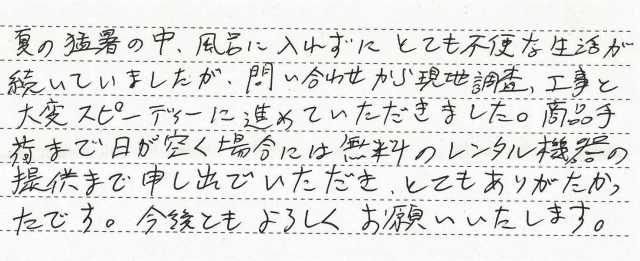 夏の猛暑の中、風呂に入れずにとても不便な生活が
続いていましたが、問い合わせから現地調査、工事と
大変スピーディーに進めていただきました。商品手
荷まで日が空く場合には無料のレンタル機器の
提供まで申し出でいただき、とてもありがたかっ
たです。今後ともよろしくお願いいたします。